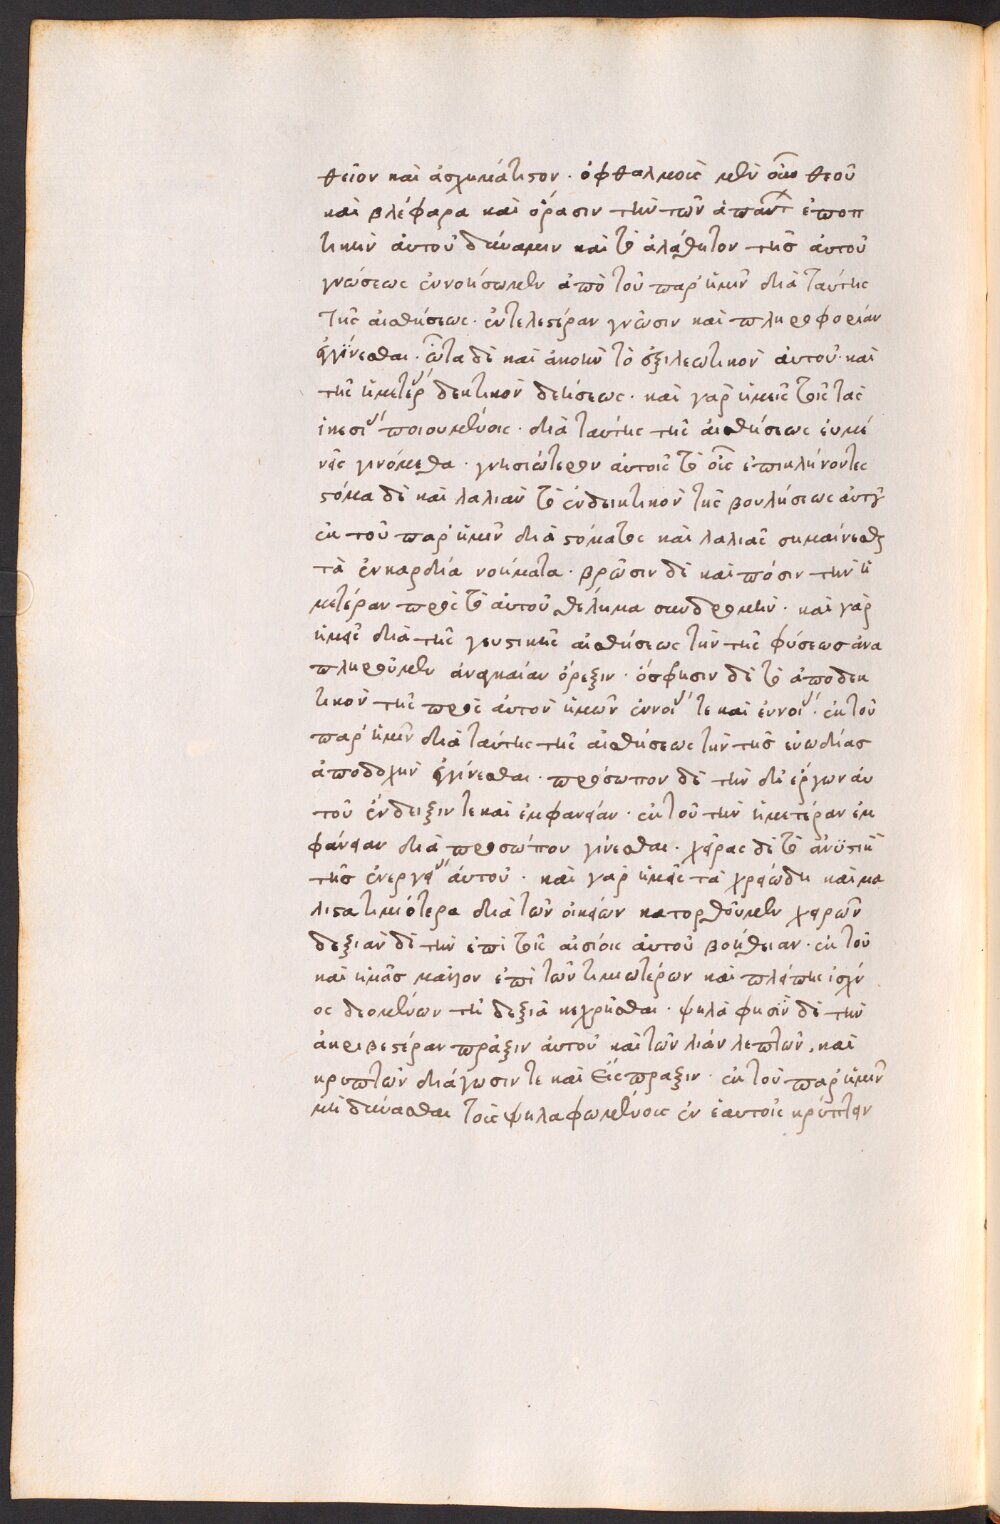 θεῖον καὶ ἀσχημάτιστον · ὀφθαλμοὺς μὲν οὖν θεοῦ
καὶ βλέφαρα καὶ ὅρασιν τὴν τῶν ἁπάντ ἐποπ
τικὴν αὐτοῦ δύναμιν καὶ τὸ ἀλάθητον τῆς αὐτοῦ
γνώσεως ἐννοήσωμεν ἀπὸ τοῦ παρ' ἡμῖν διὰ ταύτης
τῆς αἰσθήσεως · ἐντελεστέραν γνῶσιν καὶ πληροφορίαν
ἐγγίνεσθαι · ὦτα δὲ καὶ ἀκοὴν τὸ ἐξιλεωτικὸν αὐτοῦ · καὶ
τῆς ἡμετέρ δεκτικὸν δεήσεως · καὶ γὰρ ἡμεῖς τοῖς τὰς
ἱκεσί ποιουμένοις · διὰ ταύτης τῆς αἰσθήσεως εὐμέ
νεῖς γινόμεθα · γνησιώτερον αὐτοῖς τὸ οὖς ἐπικλίνοντες
στόμα δὲ καὶ λαλιὰν τὸ ἐνδεικτικὸν τῆς βουλήσεως αὐτοῦ
ἐκ τοῦ παρ' ἡμῖν διὰ στόματος καὶ λαλιᾶς σημαίνεσθαι
τὰ ἐνκαρδία νοήματα · βρῶσιν δὲ καὶ πόσιν τὴν ἡ
μετέραν πρὸς τὸ αὐτοῦ θέλημα συνδρομήν · καὶ γὰρ
ἡμεῖς διὰ τῆς γευστικῆς αἰσθήσεως τὴν τῆς φύσεως ἀνα
πληροῦμεν ἀναγκαίαν ὄρεξιν · ὄσφησιν δὲ τὸ ἀποδεκ
τικὸν τῆς πρὸς αὐτὸν ἡμῶν ἐννοί τε καὶ εὐνοί · ἐκ τοῦ
παρ' ἡμῖν διὰ ταύτης τῆς αἰσθήσεως τὴν τῆς εὐωδίας
ἀποδοχὴν ἐγγίνεσθαι · πρόσωπον δὲ τὴν δι' ἔργων αὐ
τοῦ ἔνδειξιν τε καὶ ἐμφάνειαν · ἐκ τοῦ τὴν ἡμετέραν ἐμ
φάνειαν διὰ προσώπου γίνεσθαι · χεῖρας δὲ τὸ ἀνϋστικ
τῆς ἐνεργεί αὐτοῦ · καὶ γὰρ ἡμεῖς τὰ χρειώδη καὶ μά
λιστα τιμιότερα διὰ τῶν οἰκείων κατορθοῦμεν χειρῶν
δεξιὰν δὲ τὴν ἐπὶ τοῖς αἰσίοις αὐτοῦ βοήθειαν · ἐκ τοῦ
καὶ ἡμᾶς μᾶλλον ἐπὶ τῶν τιμιωτέρων καὶ πλείστης ἰσχύ
ος δεομένων τῇ δεξιᾷ κεχρῆσθαι · ψηλάφησιν δὲ τὴν
ἀκριβεστέραν πρᾶξιν αὐτοῦ καὶ τῶν λίαν λεπτῶν, καὶ
κρυπτῶν διάγνωσιν τε καὶ εἴσπραξιν · ἐκ τοῦ παρ' ἡμῖν
μὴ δύνασθαι τοῖς ψηλαφωμένοις ἐν ἑαυτοῖς κρύπτειν